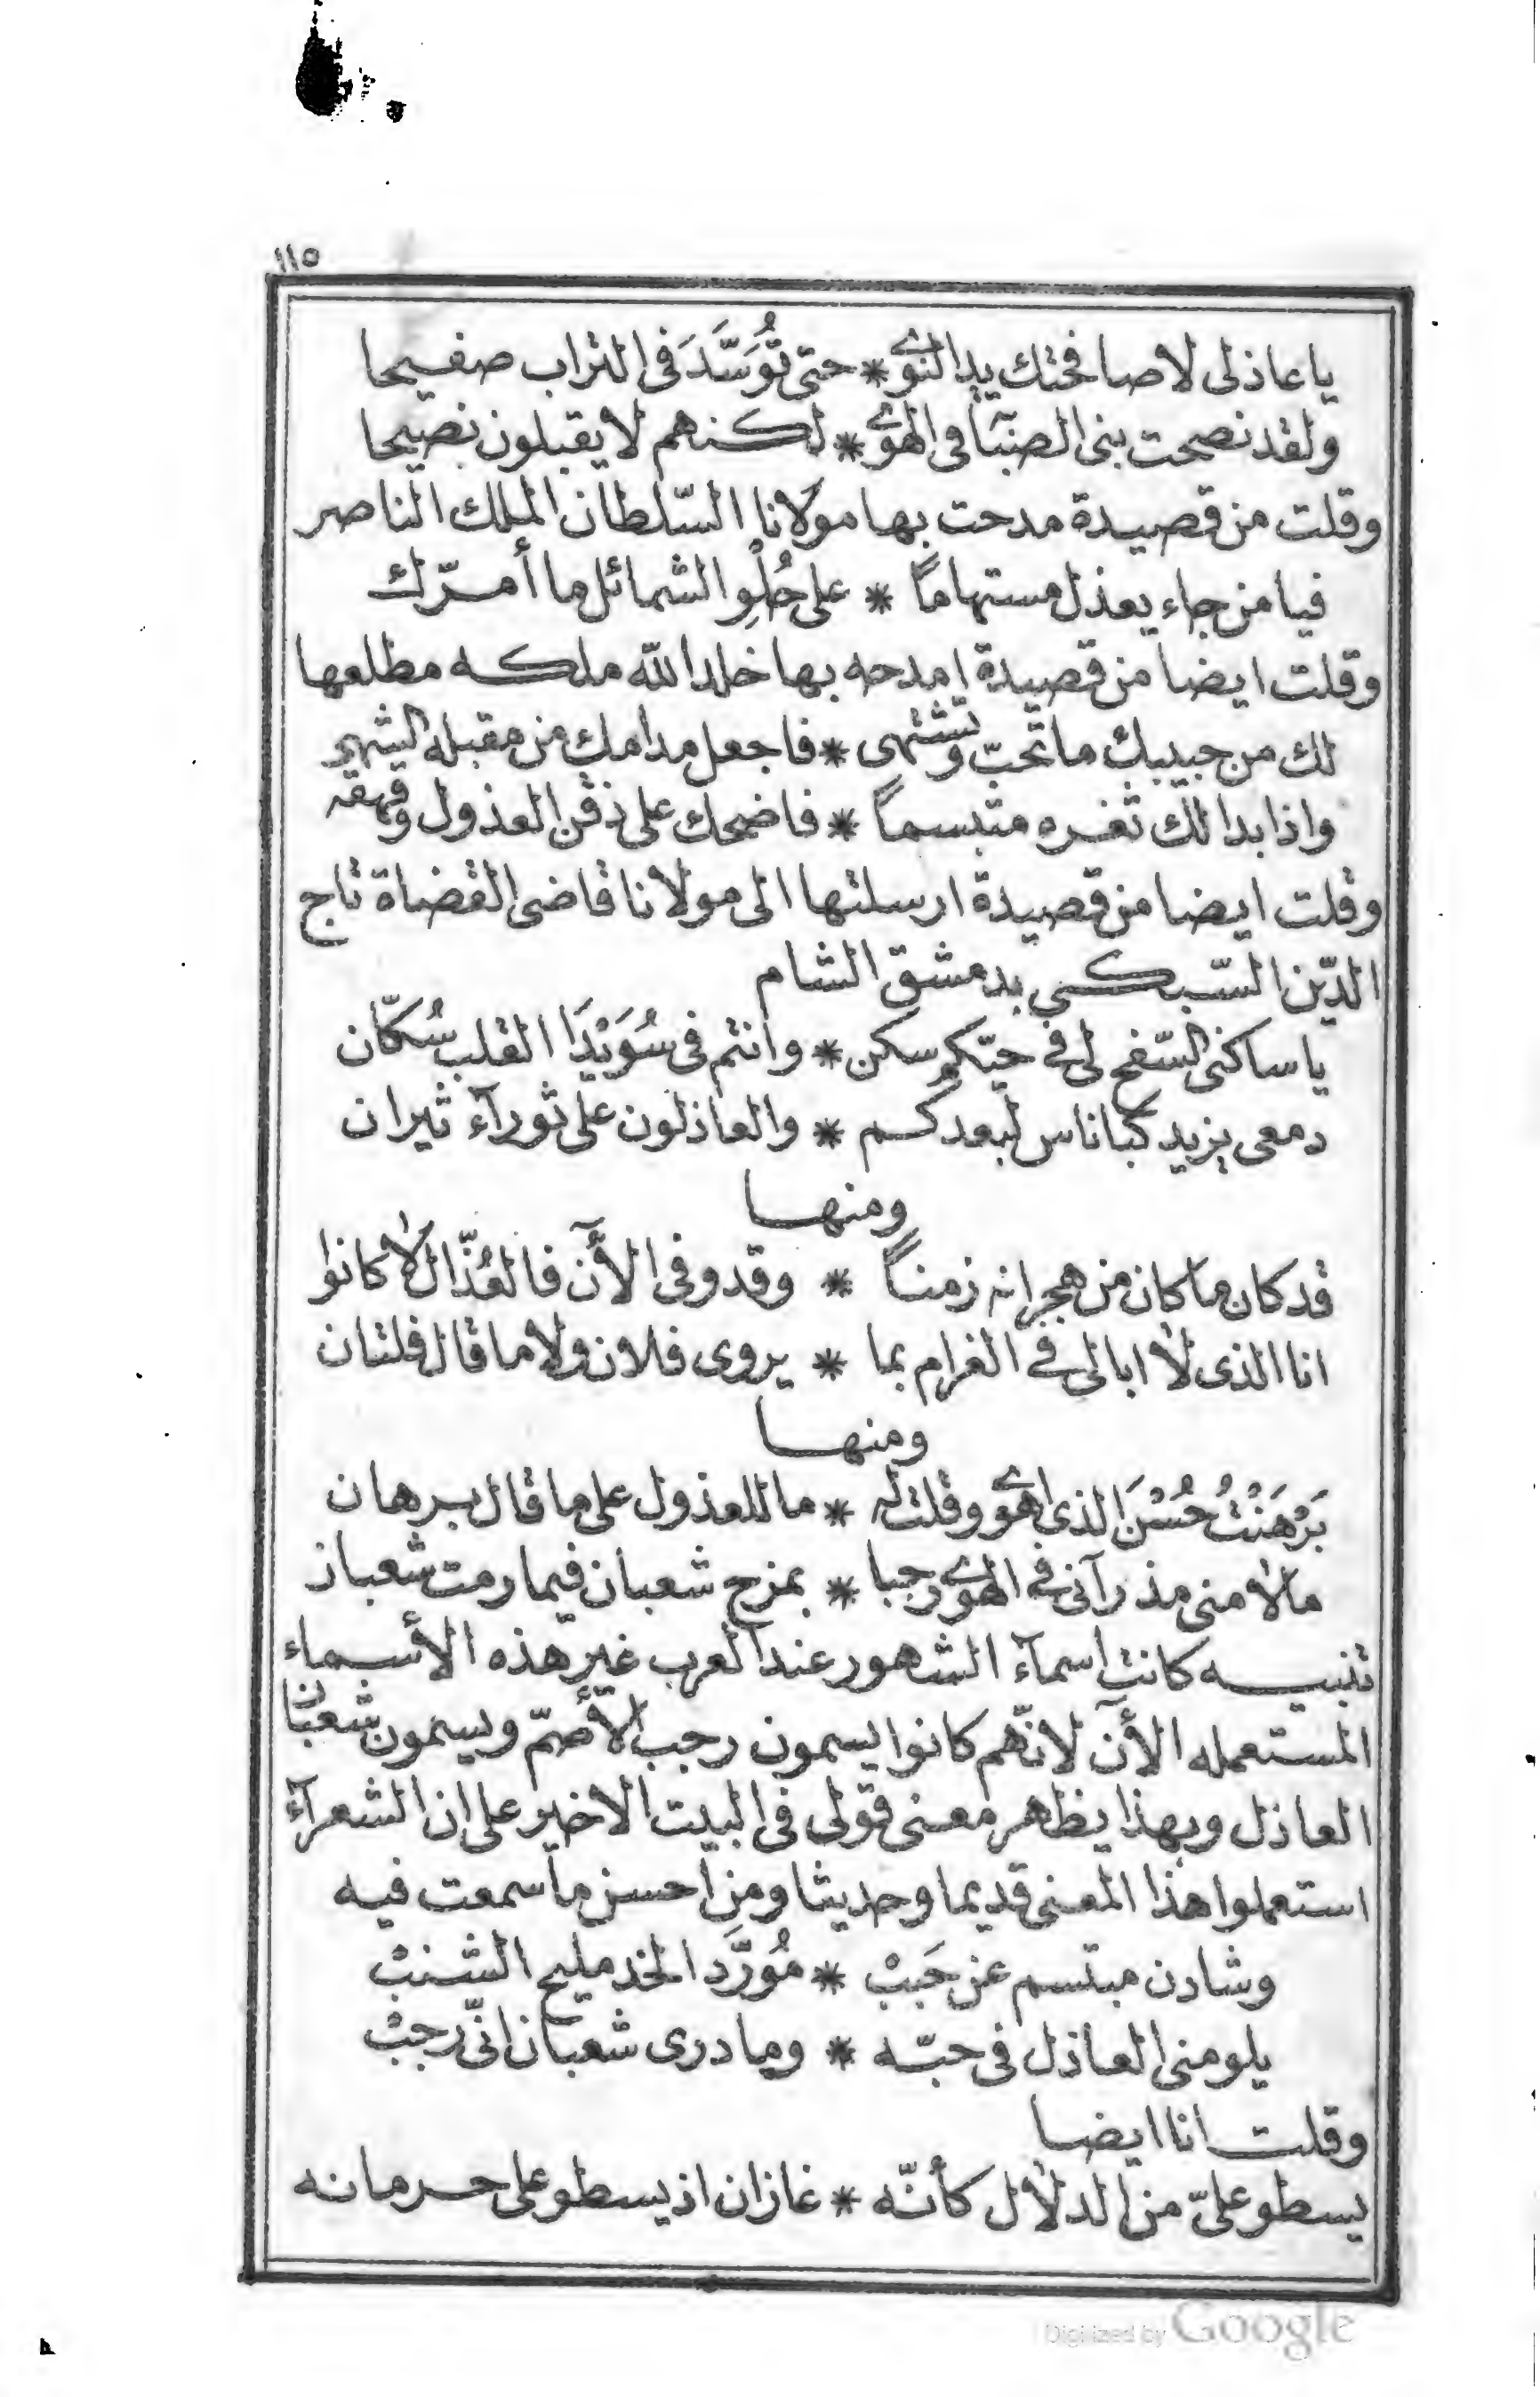 ١١٥
يا عاذلى لا صافحتك يد النوى * حتى تُوَسَّدَ فى التراب صفيحا
ولقد نصحت بنى الصبا فى الهوى * لكنهم لا يقبلون نصيحا
وقلت من قصيدة مدحت بها مولانا السّلطان الملك الناصر
فيا من جاء يعذل مستهاماً * على حُلْوِ الشمائل ما أمرّك
وقلت ايضا من قصيدة امدحه بها خلد الله ملكه مطلعها
لك من حبيبك ما تحبّ وتشتهى * فاجعل مدامك من مقبله الشهى
واذا بدا لك ثغره متبسماً * فاضحك على ذقن العذول وقهقه
وقلت ايضا من قصيدة ارسلتها الى مولانا قاضى القضاة تاج
الدّين السّبكى بدمشق الشام
يا ساكنى السّفح لى فى حيّكم سكن * وانتم فى سُوَيْدَا القلب سُكّان
دمعى يزيد كباناس لبعدكم * والعاذلون على ثورآء ثيران
ومنها
قد كان ما كان من هجرانه زمناً * وقد وفى الآن فالعُذّال لا كانوا
انا الذى لا ابالى فى الغرام بما * يروى فلان ولا ما قال فلتان
ومنها
بَرْهَنْتُ حُسْنَ الذى اهوى وقلت له * ما للعذول على ما قال برهان
ما لامنى مذ رآنى فى الهوى رجبا * بمزح شعبان فيما رمت شعبان
تنبيه كانت اسمآء الشهور عند العرب غير هذه الأسماء
المستعمله الآن لانّهم كانوا يسمون رجب الأصمّ ويسمون شعبان
العاذل وبهذا يظهر معنى قولى فى البيت الاخير على ان الشعرآء
استعملوا هذا المعنى قديما وحديثا ومن احسن ما سمعت فيه
وشادن مبتسم عن حَبَبْ * مُوَرَّد الخد مليح الشنبْ
يلومنى العاذل فى حبّه * وما درى شعبان انّى رجبْ
وقلت انا ايضا
يسطو علىّ من الدلال كأنّه * غازان اذ يسطو على حرمانه
Digitized by Google